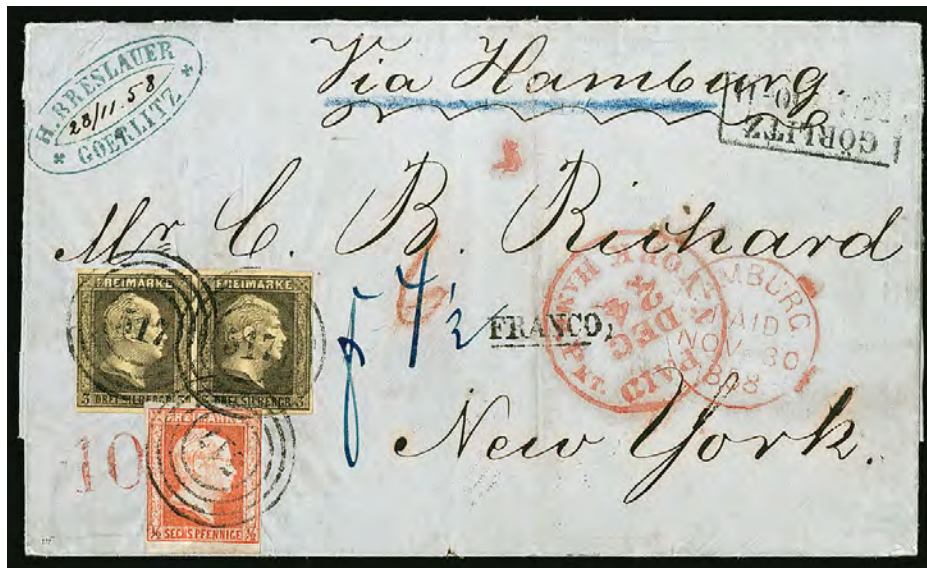 H. BRESLAUER
28/11.58
GOERLITZ
Via Hamburg.
GÖRLITZ
Mr C. B. Richard
FREIMARKE
3 DREI SILBERGR. 3
FREIMARKE
517
3 DREI SILBERGR. 3
4½
FRANCO,
PAID
DEC
HAMBURG
PAID
NOV 30
1858
New York.
10
FREIMARKE
½ SECHS PFENNIGE ½